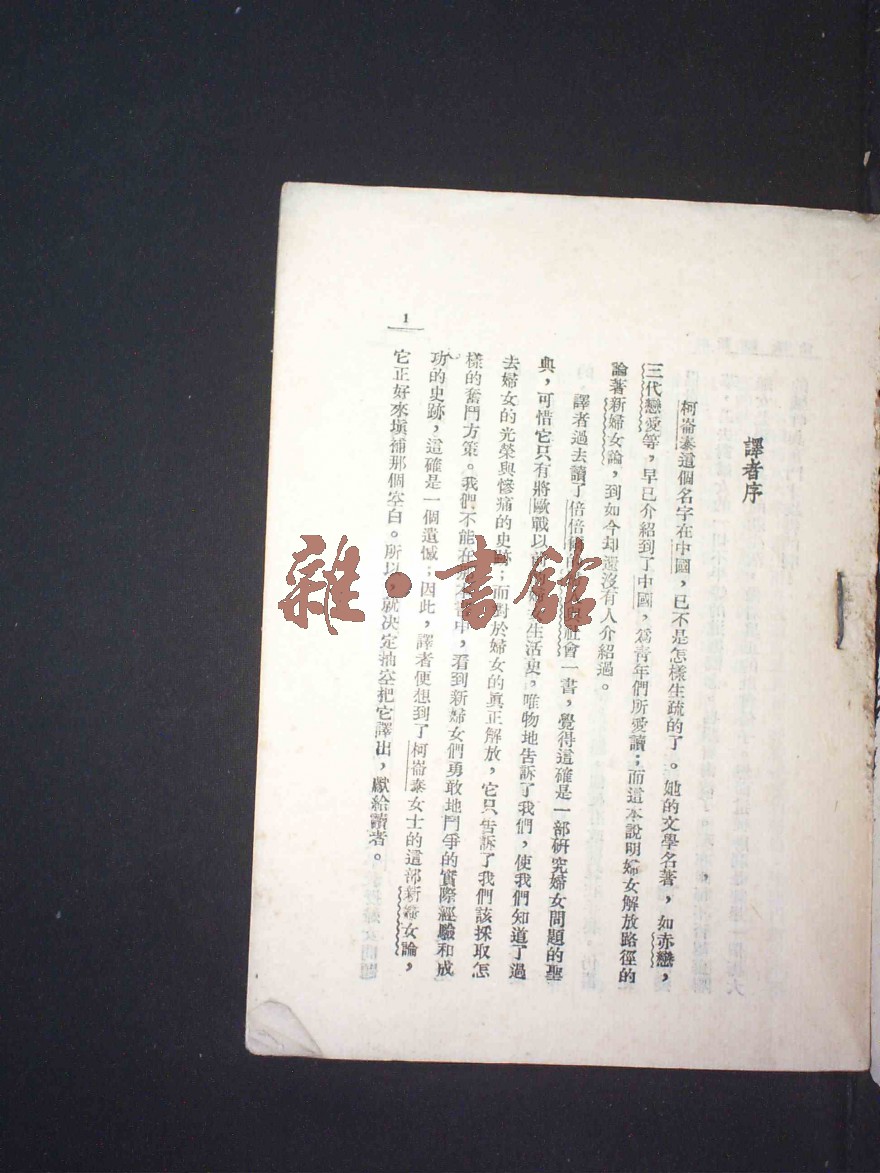 譯者序
柯崙泰這個名字在中國，已不是怎樣生疏的了。她的文學名著，如赤戀，
三代戀愛等，早已介紹到了中國，爲青年們所愛讀；而這本說明婦女解放路徑的
論著新婦女論，到如今却還沒有人介紹過。
譯者過去讀了倍倍爾的社會一書，覺得這確是一部硏究婦女問題的聖
典，可惜它只有將歐戰以前婦女生活史，唯物地告訴了我們，使我們知道了過
去婦女的光榮與慘痛的史跡；而對於婦女的眞正解放，它只告訴了我們該採取怎
樣的奮鬥方策。我們不能在中，看到新婦女們勇敢地鬥爭的實際經驗和成
功的史跡，這確是一個遺憾；因此，譯者便想到了柯崙泰女士的這部新婦女論，
它正好來塡補那個空白。所以，就決定抽空把它譯出，獻給讀者。
1
雜·書館